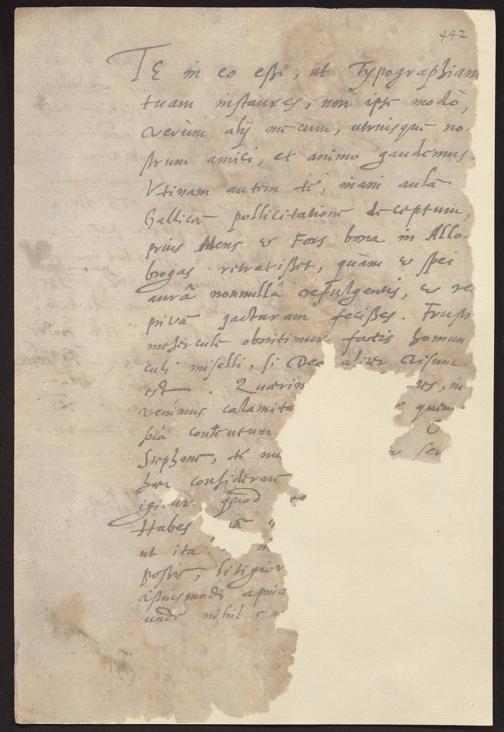 442
TE in eo esse, ut Typographiam
tuam instaures, non ipse modò,
verùm alij mecum, utriusque no-
strum amici, et animo gaudemus.
Utinam autem te, inani aulae
Gallicae pollicitatione deceptum,
prius Mens & Fors bona in Allo-
brogas retraxisset, quàm & spei
aurâ nonnullâ refulgentis, & re
privâ jacturam fecisses. Frustrà
mehercule obnitimur fatis homun
culi miselli, si Deo aliter visum
est. Quaerim res, in
venimus calamita quem
contentum
Stephane, te
haec consideran
igitur quod
Habes
ut ita
possis, litigior
istiusmodi
unde nihil